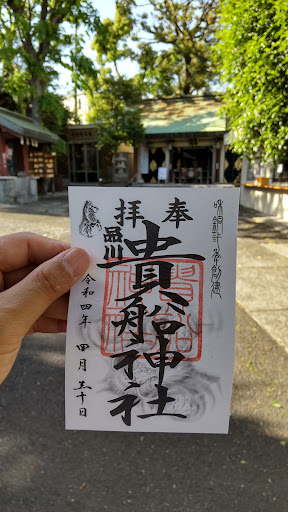 奉拝
品川
貴船神社
令和四年四月三十日